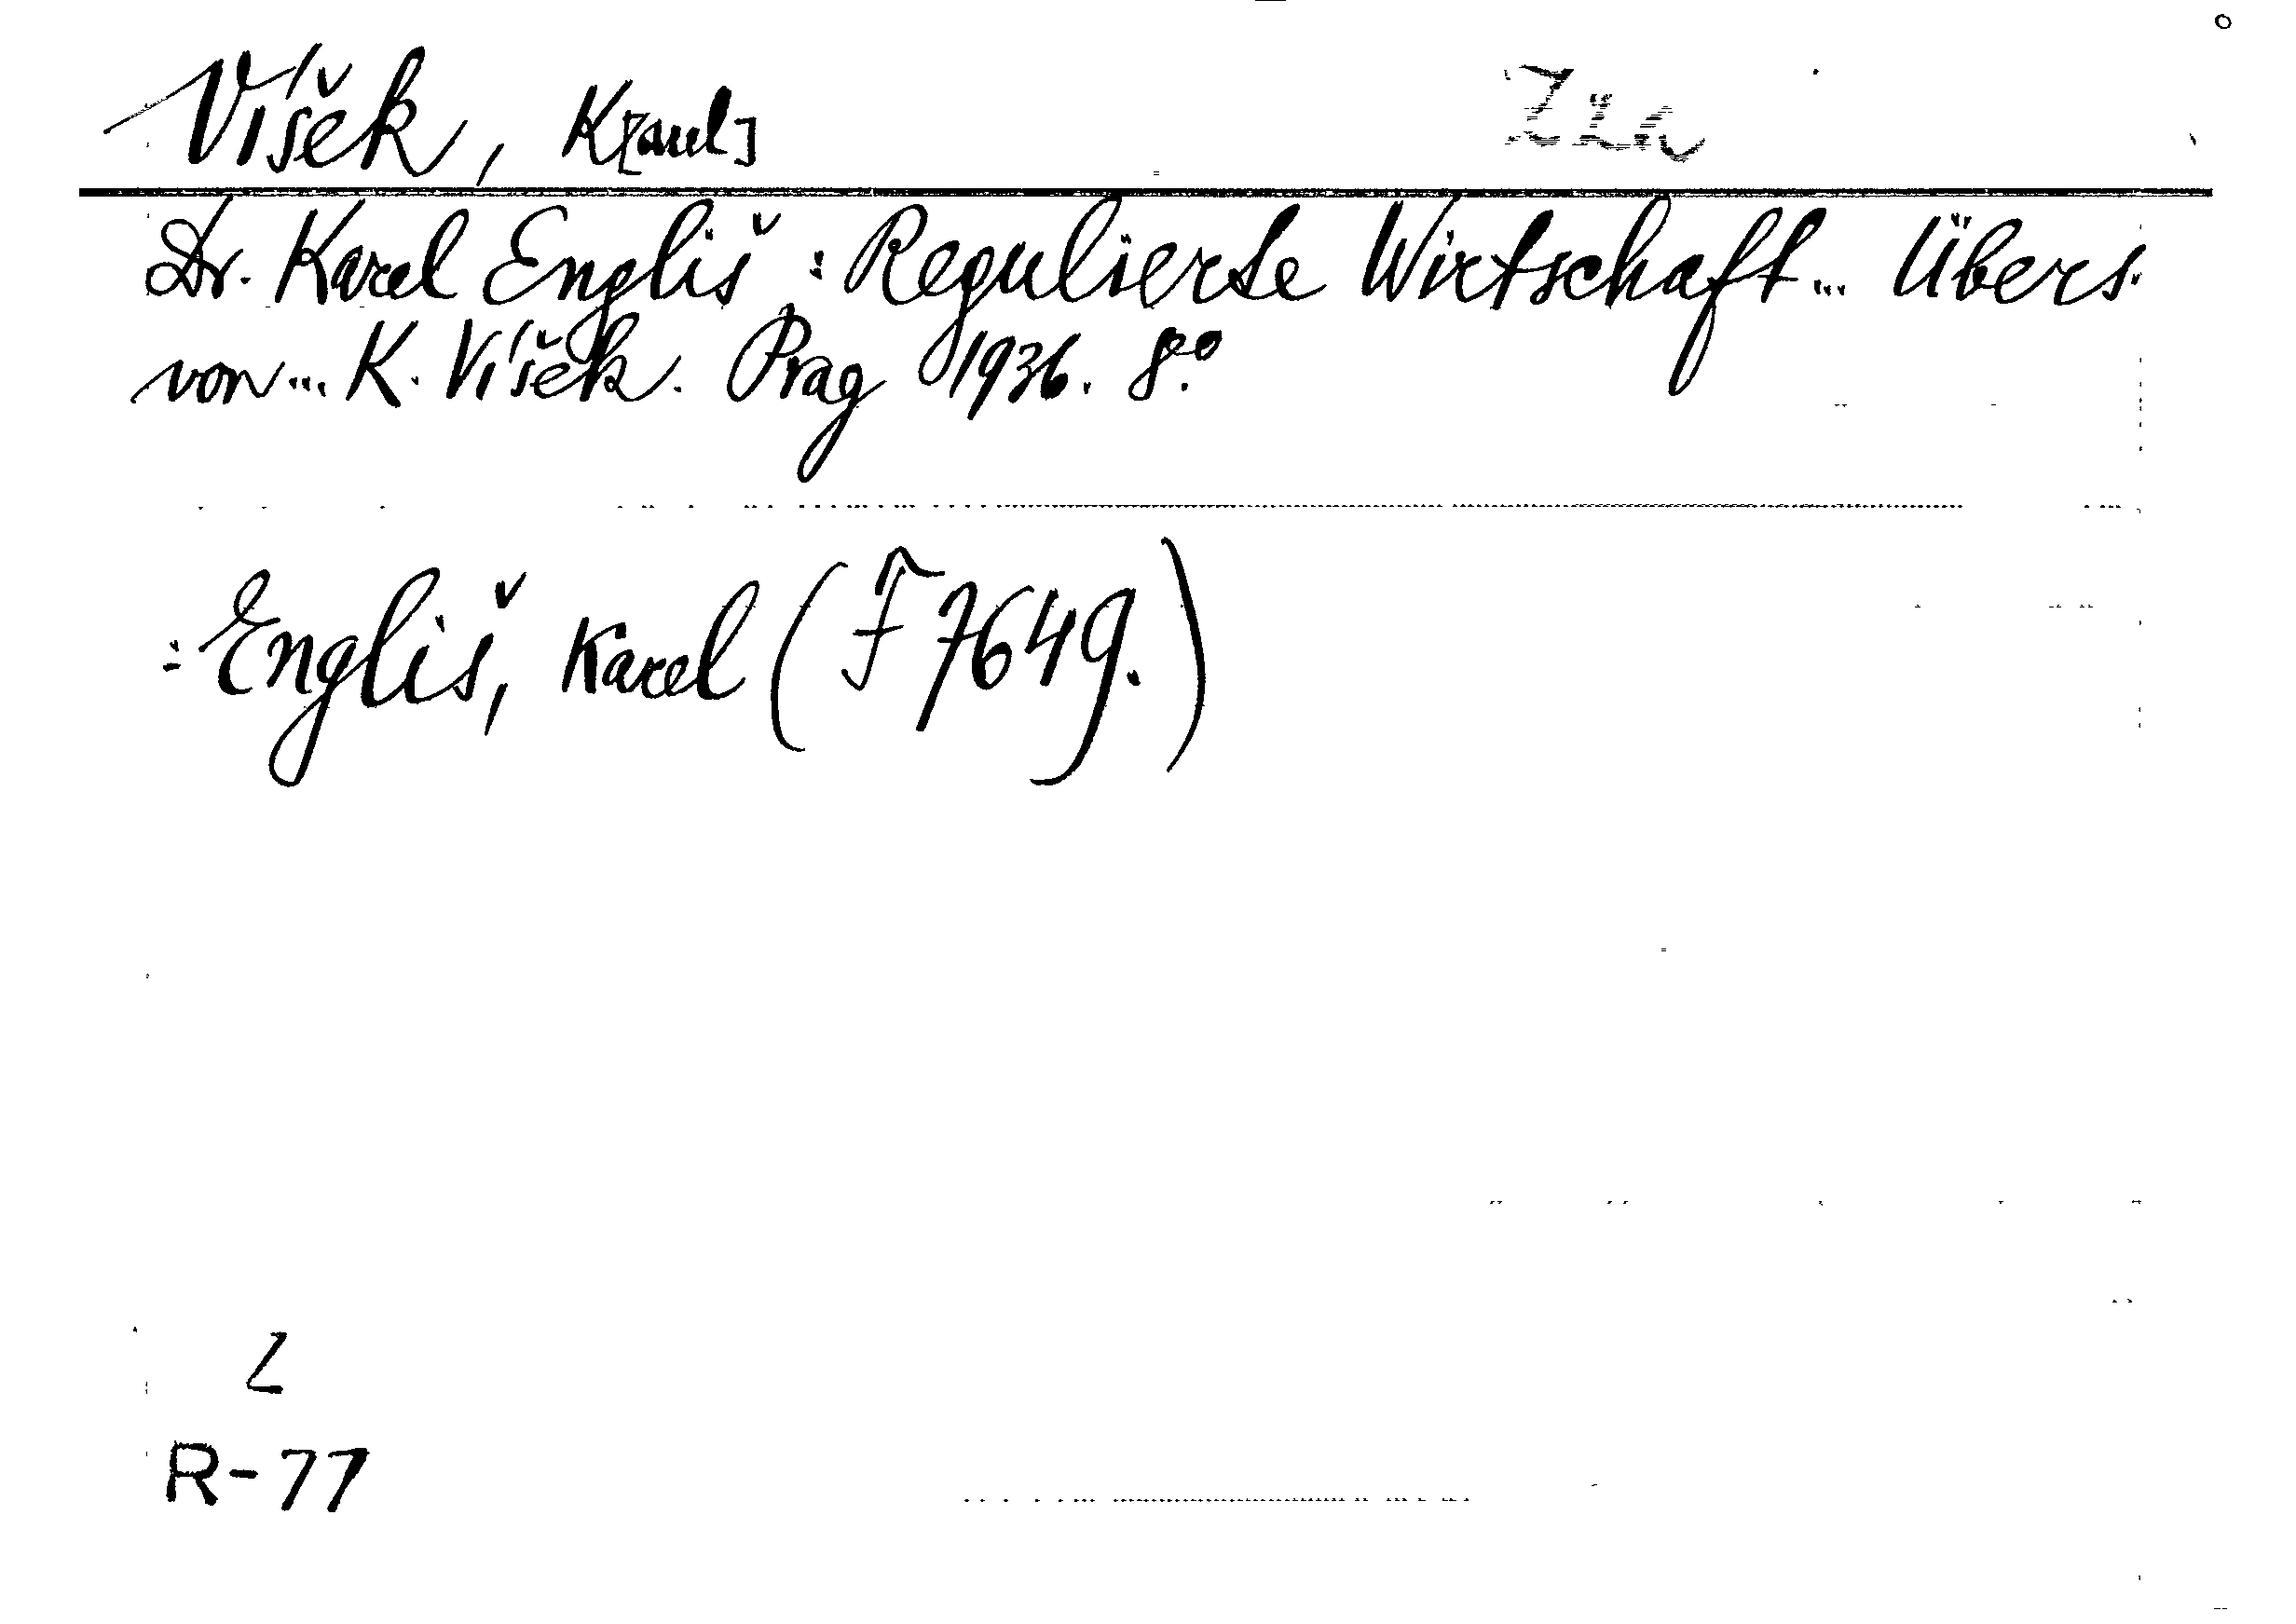 Víšek, K[arel]
Dr. Karel Engliš: Regulierte Wirtschaft... Übers.
von... K. Víšek. Prag 1936. 8.°
: Engliš, Karel (F 7649.)
Z
R-77